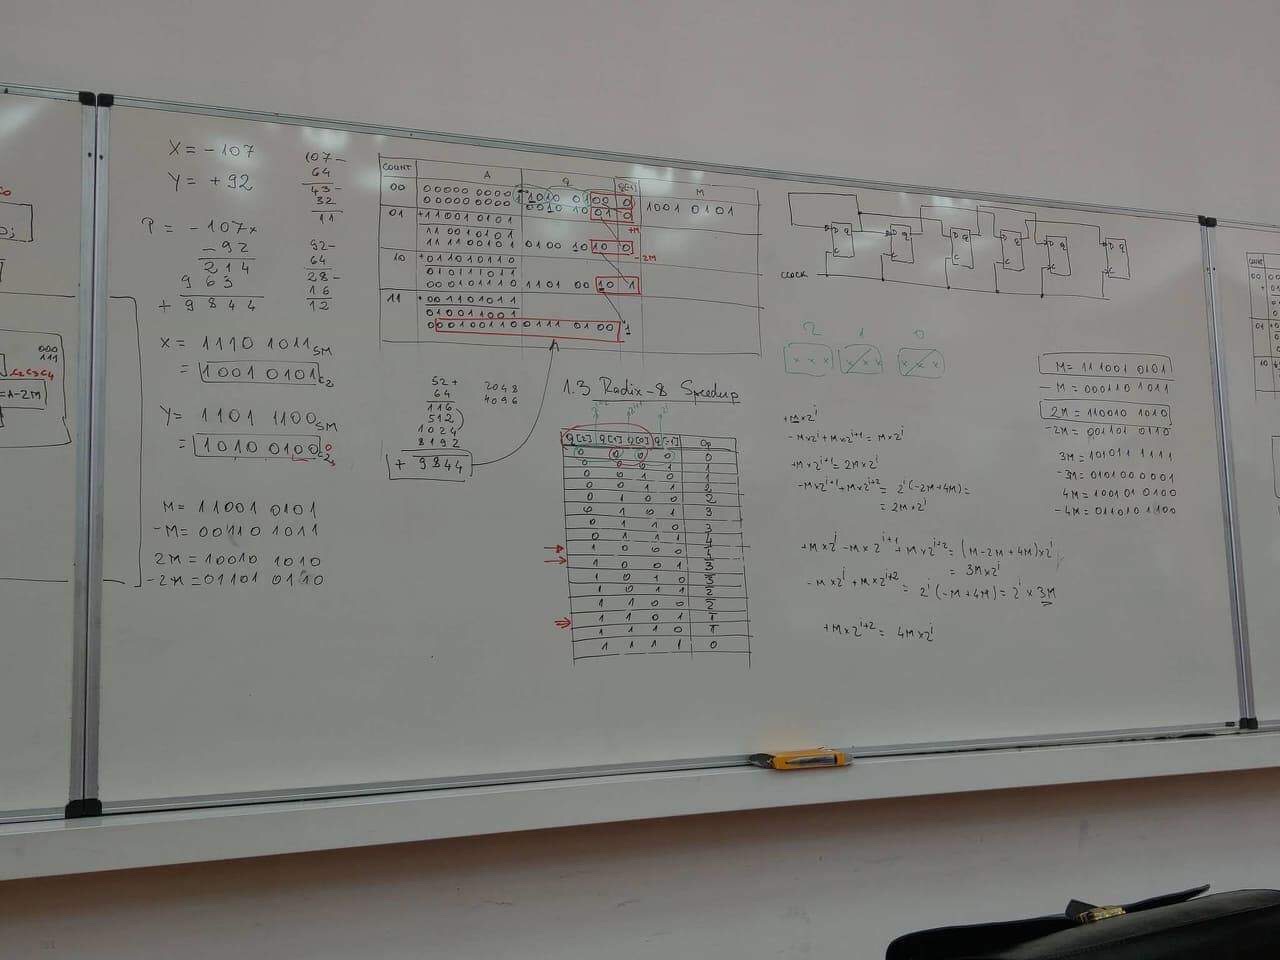 X = -107
Y = +92
107-
64
43-
32
11
P = -107×
-92
214
963
+ 9844
92-
64
28-
16
12
X = 1110 1011SM
= 1001 0101C2
Y = 1101 1100SM
= 1010 0100C2
M = 11001 0101
-M = 00110 1011
2M = 10010 1010
-2M = 01101 0110
COUNT A Q Q[-1] M
00
00000 0000 1010 0100 0 1001 0101
01
+11001 0101
11001 0101
+M
111100101 0100 1010 0
-2M
10
+011010110
010111011
000101110 1101 0010 1
11
+001101011
010011001
000100110 0111 0100 1
52+
64
116
512
1024
8192
+ 9844
2048
4096
1.3 Radix-8 Speedup
Q[2] Q[1] Q[0] Q[-1] Op
0 0 0 0 0
0 0 0 1 1
0 0 1 0 1
0 0 1 1 2
0 1 0 0 2
0 1 0 1 3
0 1 1 0 3
0 1 1 1 4
1 0 0 0 4̅
1 0 0 1 3̅
1 0 1 0 3̅
1 0 1 1 2̅
1 1 0 0 2̅
1 1 0 1 1̅
1 1 1 0 1̅
1 1 1 1 0
D Q
C
D Q
C
D Q
C
D Q
C
D Q
C
D Q
C
CLOCK
2 1 0
x x x x x x x x x
+M×2^i
-M×2^i+M×2^i+1 = M×2^i
+M×2^i+1 = 2M×2^i
-M×2^i+1+M×2^i+2 = 2^i(-2M+4M) =
= 2M×2^i
+M×2^i - M×2^i+1 + M×2^i+2 = (M-2M+4M)×2^i
= 3M×2^i
-M×2^i+M×2^i+2 = 2^i(-M+4M) = 2^i×3M
+M×2^i+2 = 4M×2^i
M = 111001 0101
-M = 000110 1011
2M = 110010 1010
-2M = 001101 0110
3M = 101011 1111
-3M = 010100 0001
4M = 100101 0100
-4M = 011010 1100
000
111
C2C3C4
=A-2M
COUNT
00
01
10